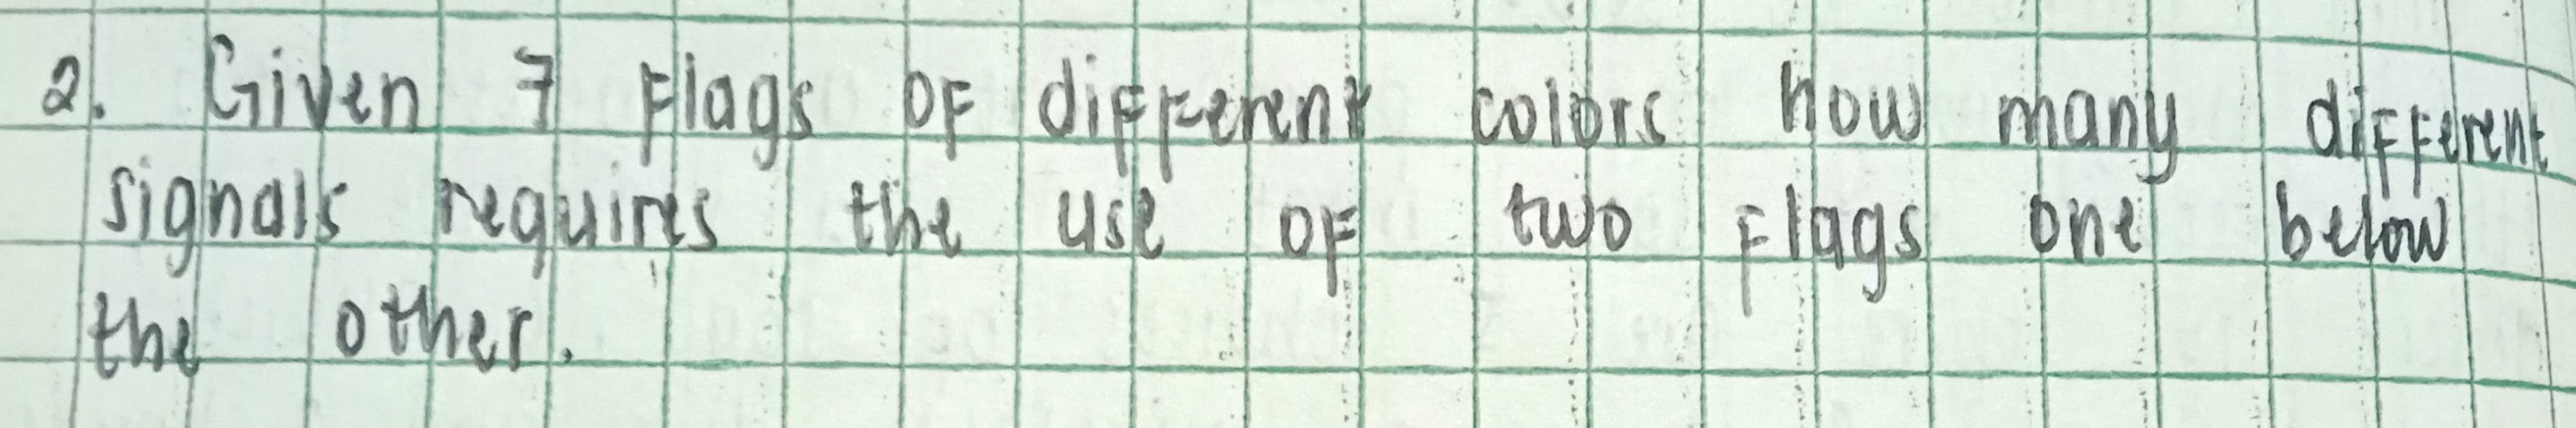 2. Given 7 flags of different colors how many different
signals requires the use of two flags one below
the other.